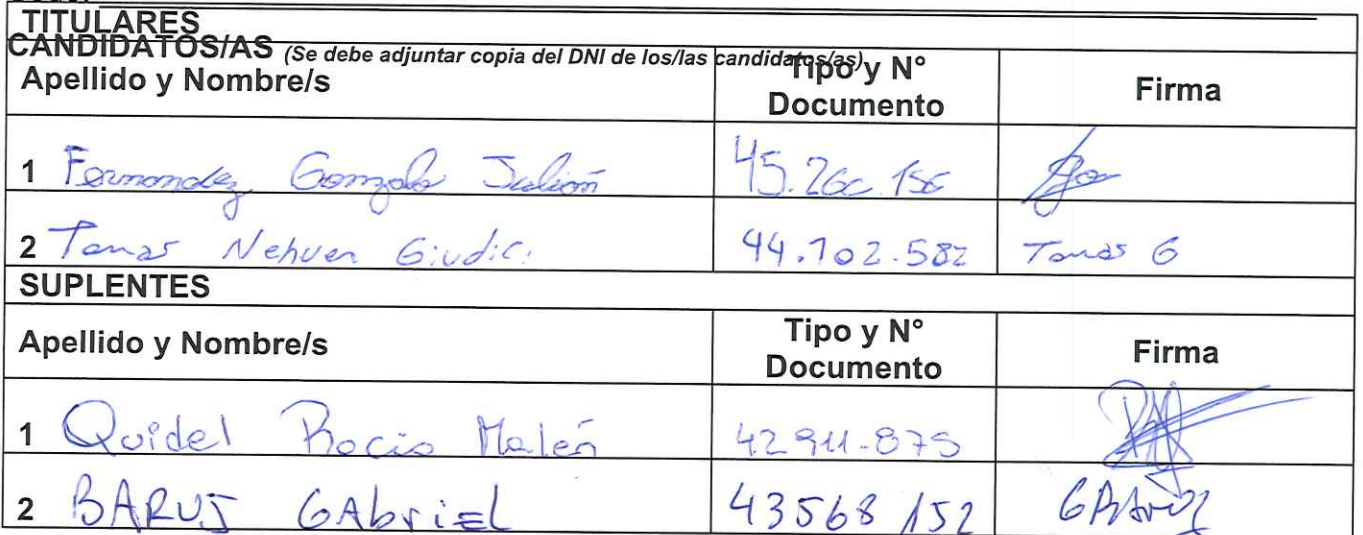 TITULARES
CANDIDATOS/AS (Se debe adjuntar copia del DNI de los/las candidatos/as)
Apellido y Nombre/s Tipo y N° Documento Firma
1 Fernandez Gonzalo Julián 45.266.156
2 Tomas Nehuen Giudici 44.702.582 Tomas G
SUPLENTES
Apellido y Nombre/s Tipo y N° Documento Firma
1 Quidel Rocio Malén 42911-875
2 BARUJ GAbriEL 43568152